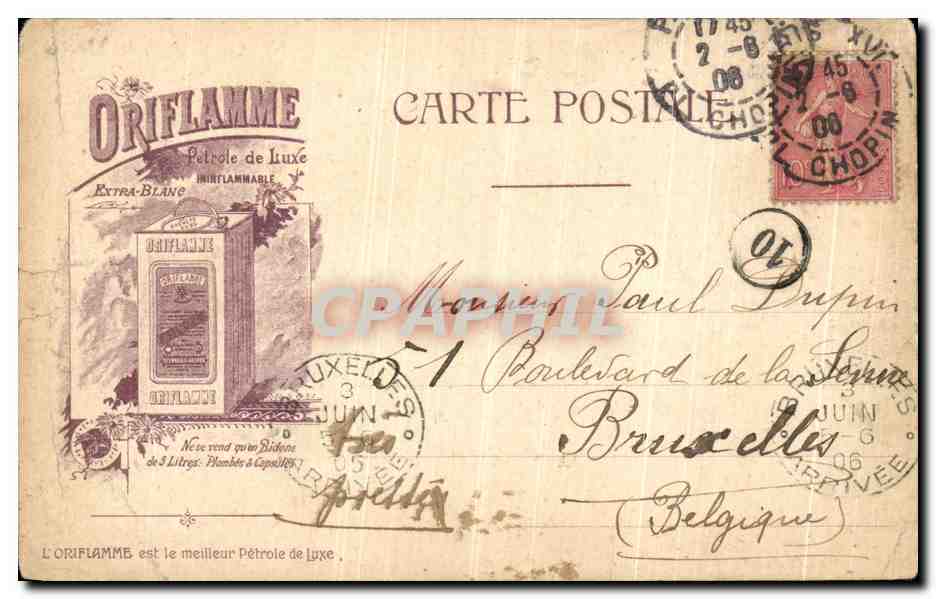 ORIFLAMME
Pétrole de Luxe
ININFLAMMABLE
EXTRA-BLANC
ORIFLAMME
ORIFLAMME
ORIFLAMME
Ne se vend qu'en Bidons
de 5 Litres: Plombés & Capsulés
L'ORIFLAMME est le meilleur Pétrole de Luxe.
CARTE POSTALE
17 45
2 -6
06
CHOPIN
XVI
45
2 -6
06
CHOPIN
10
10
CPAPHIL
Monsieur Paul Dupin
51 Boulevard de la Senne
Bruxelles
(Belgique)
très
BRUXELLES
3
JUIN
ARRIVÉE
BRUXELLES
3
JUIN
-6
06
ARRIVÉE